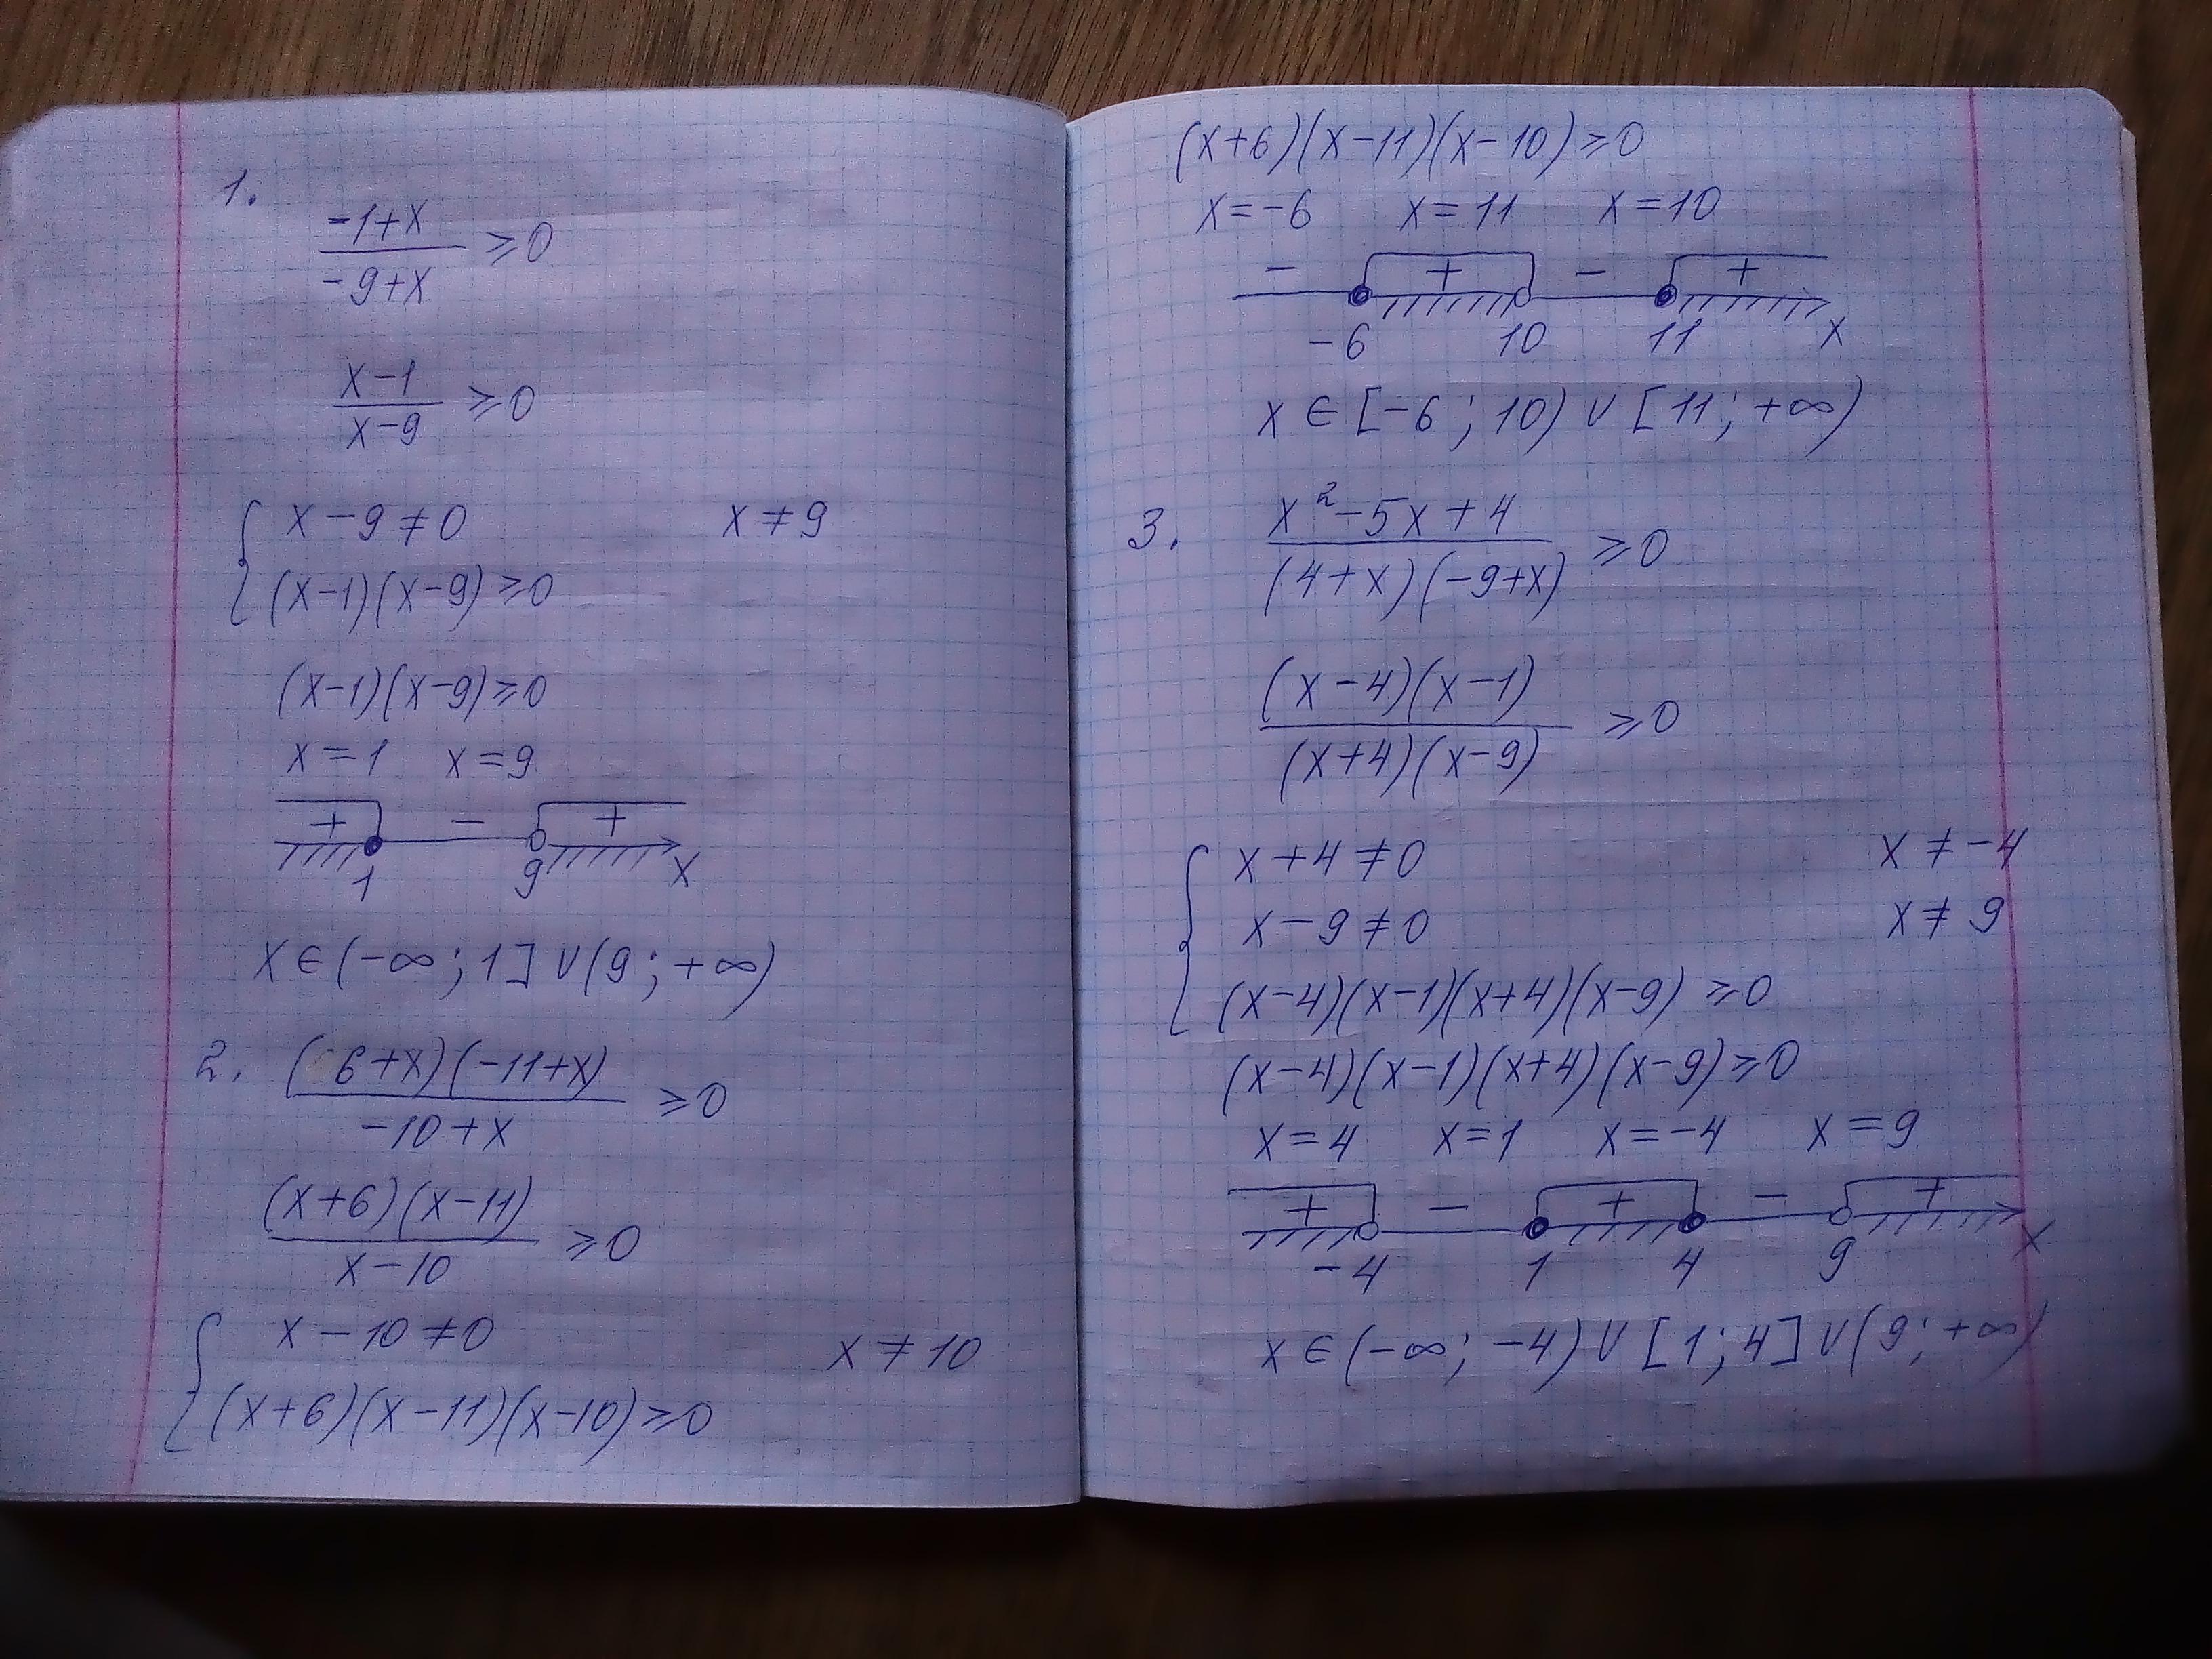 1.
-1+x
-9+x ≥0
x-1
x-9 ≥0
x-9≠0 x≠9
(x-1)(x-9)≥0
(x-1)(x-9)≥0
x=1 x=9
+ - +
1 9 x
x∈(-∞;1]∪(9;+∞)
2. (6+x)(-11+x)
-10+x ≥0
(x+6)(x-11)
x-10 ≥0
x-10≠0 x≠10
(x+6)(x-11)(x-10)≥0
(x+6)(x-11)(x-10)≥0
x=-6 x=11 x=10
- + - +
-6 10 11 x
x∈[-6;10)∪[11;+∞)
3. x²-5x+4
(4+x)(-9+x) ≥0
(x-4)(x-1)
(x+4)(x-9) ≥0
x+4≠0 x≠-4
x-9≠0 x≠9
(x-4)(x-1)(x+4)(x-9)≥0
(x-4)(x-1)(x+4)(x-9)≥0
x=4 x=1 x=-4 x=9
+ - + - +
-4 1 4 9 x
x∈(-∞;-4)∪[1;4]∪(9;+∞)